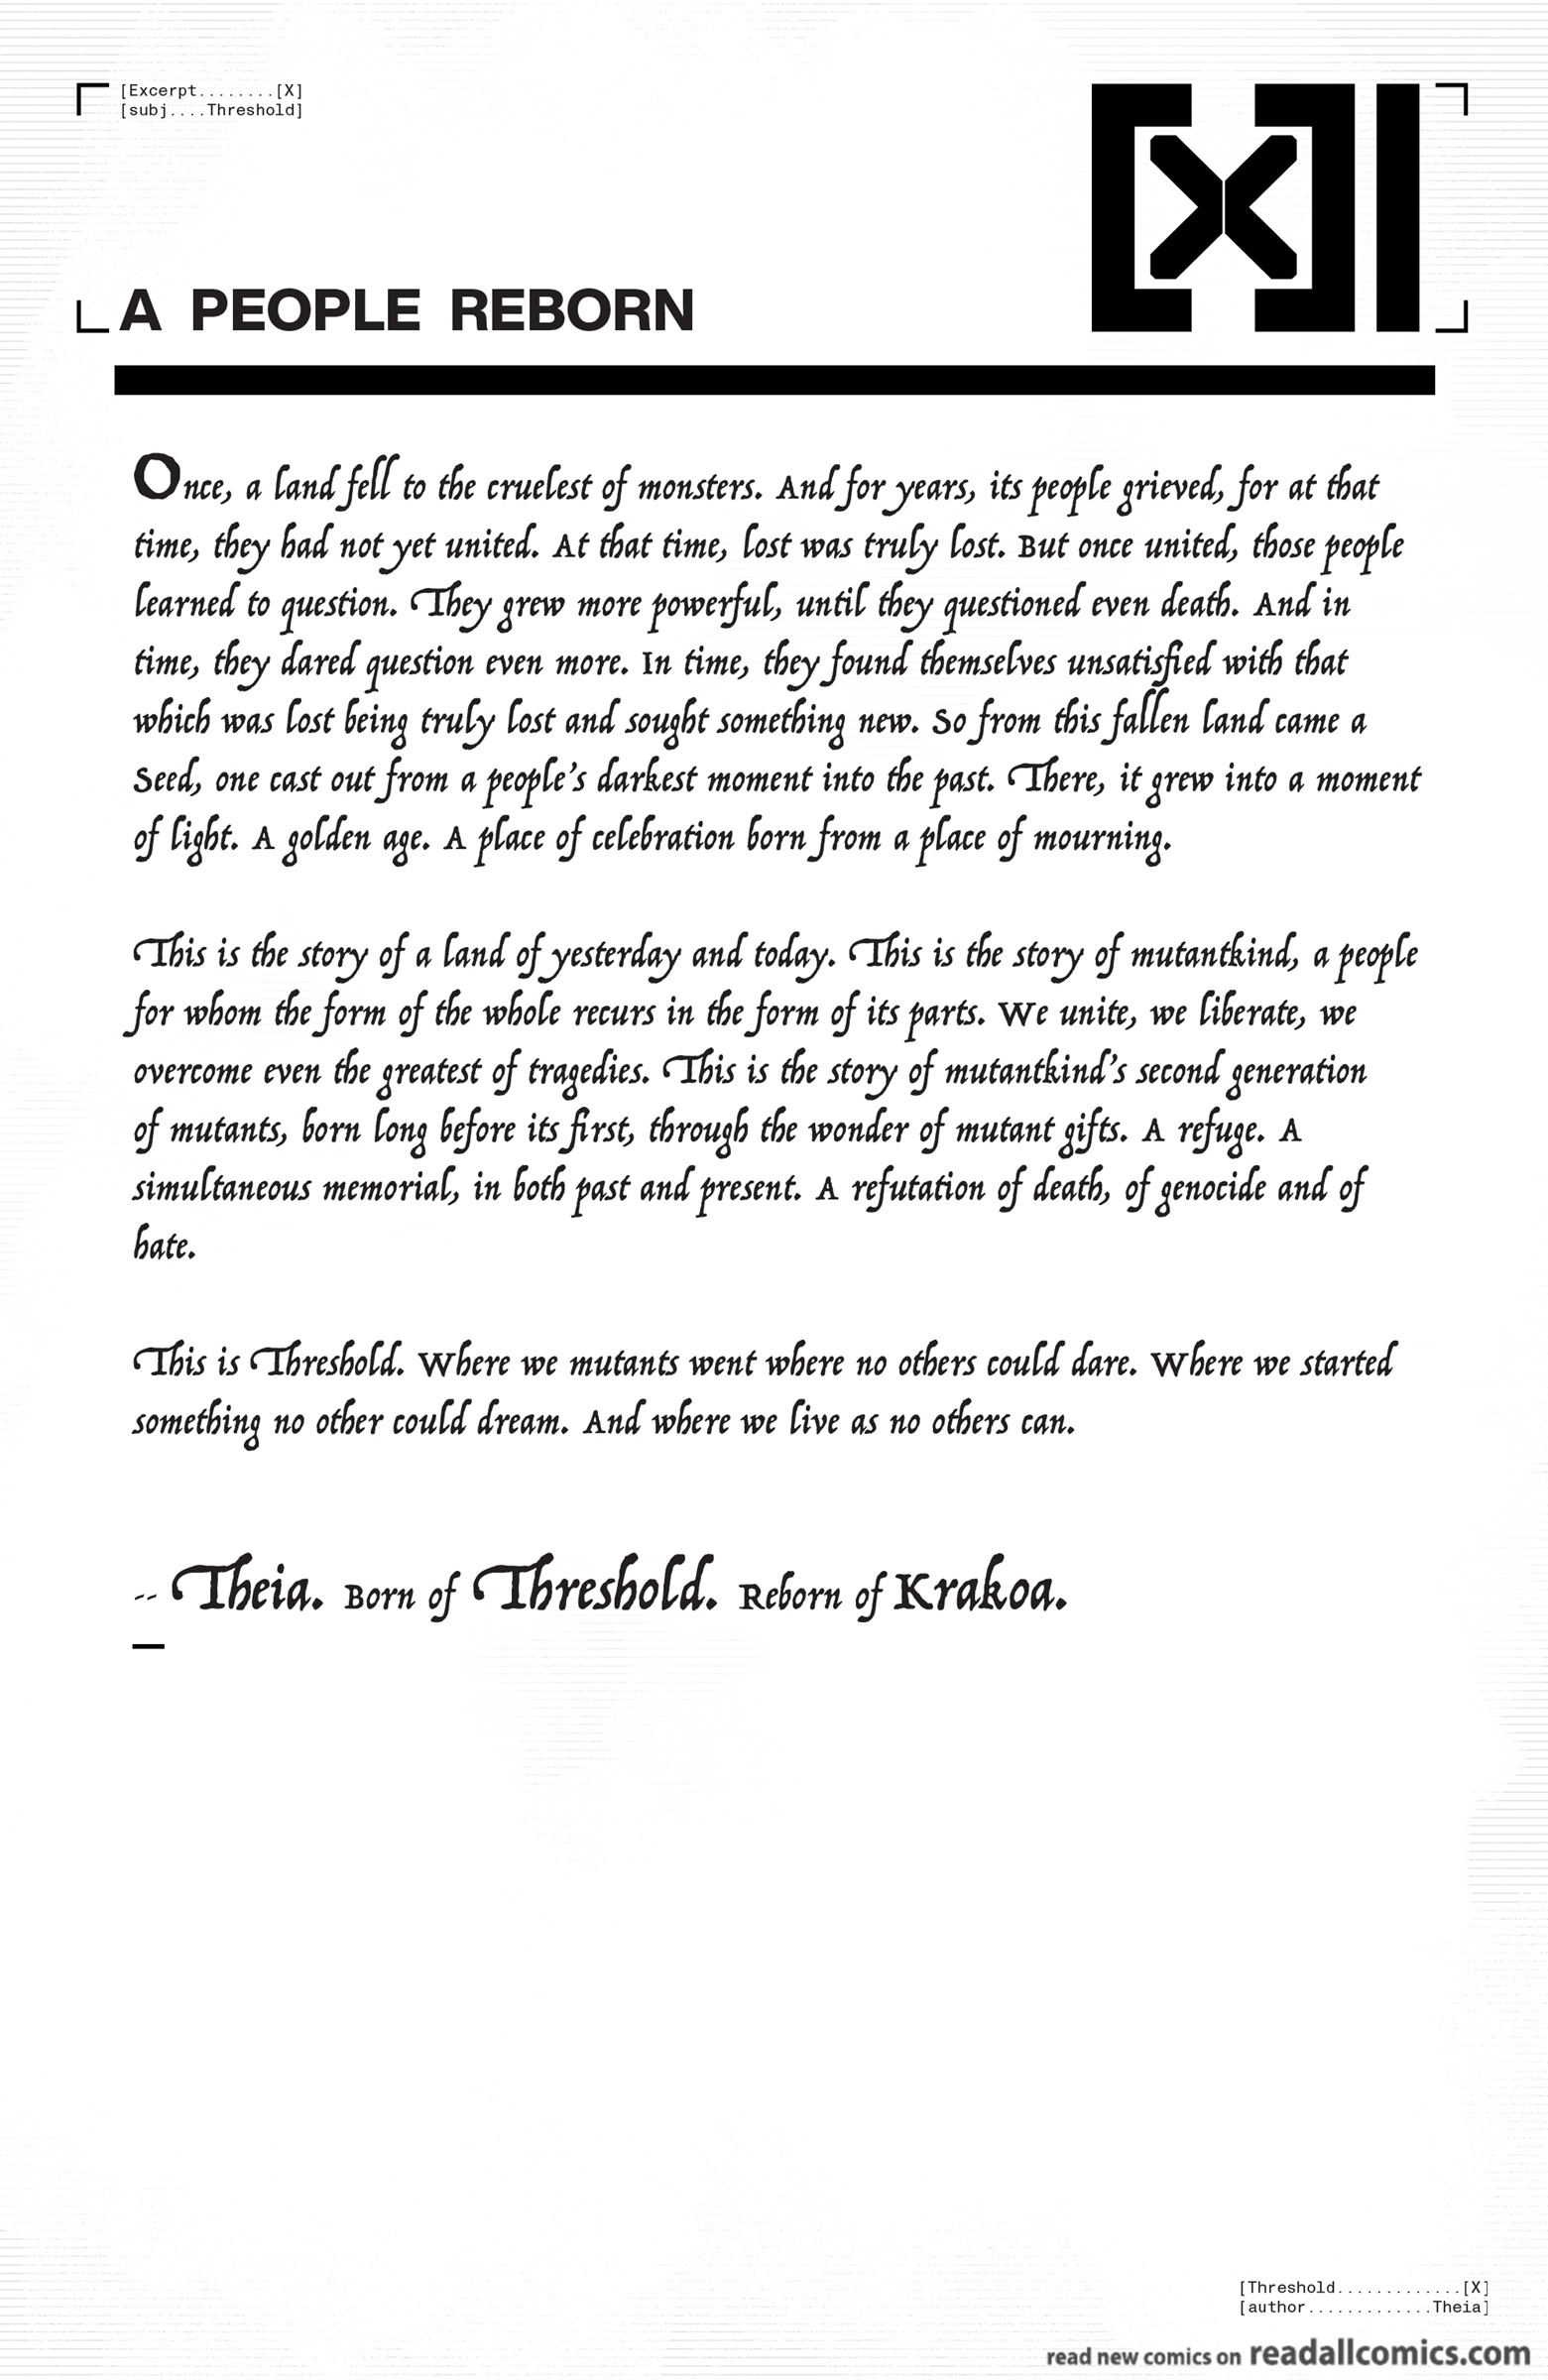 [Excerpt........[X]
[subj....Threshold]
[X]|
A PEOPLE REBORN
Once, a land fell to the cruelest of monsters. And for years, its people grieved, for at that
time, they had not yet united. At that time, lost was truly lost. But once united, those people
learned to question. They grew more powerful, until they questioned even death. And in
time, they dared question even more. In time, they found themselves unsatisfied with that
which was lost being truly lost and sought something new. So from this fallen land came a
Seed, one cast out from a people's darkest moment into the past. There, it grew into a moment
of light. A golden age. A place of celebration born from a place of mourning.
This is the story of a land of yesterday and today. This is the story of mutantkind, a people
for whom the form of the whole recurs in the form of its parts. We unite, we liberate, we
overcome even the greatest of tragedies. This is the story of mutantkind's second generation
of mutants, born long before its first, through the wonder of mutant gifts. A refuge. A
simultaneous memorial, in both past and present. A refutation of death, of genocide and of
hate.
This is Threshold. Where we mutants went where no others could dare. Where we started
something no other could dream. And where we live as no others can.
-- Theia. Born of Threshold. Reborn of Krakoa.
[Threshold.............[X]
[author.............Theia]
read new comics on readallcomics.com